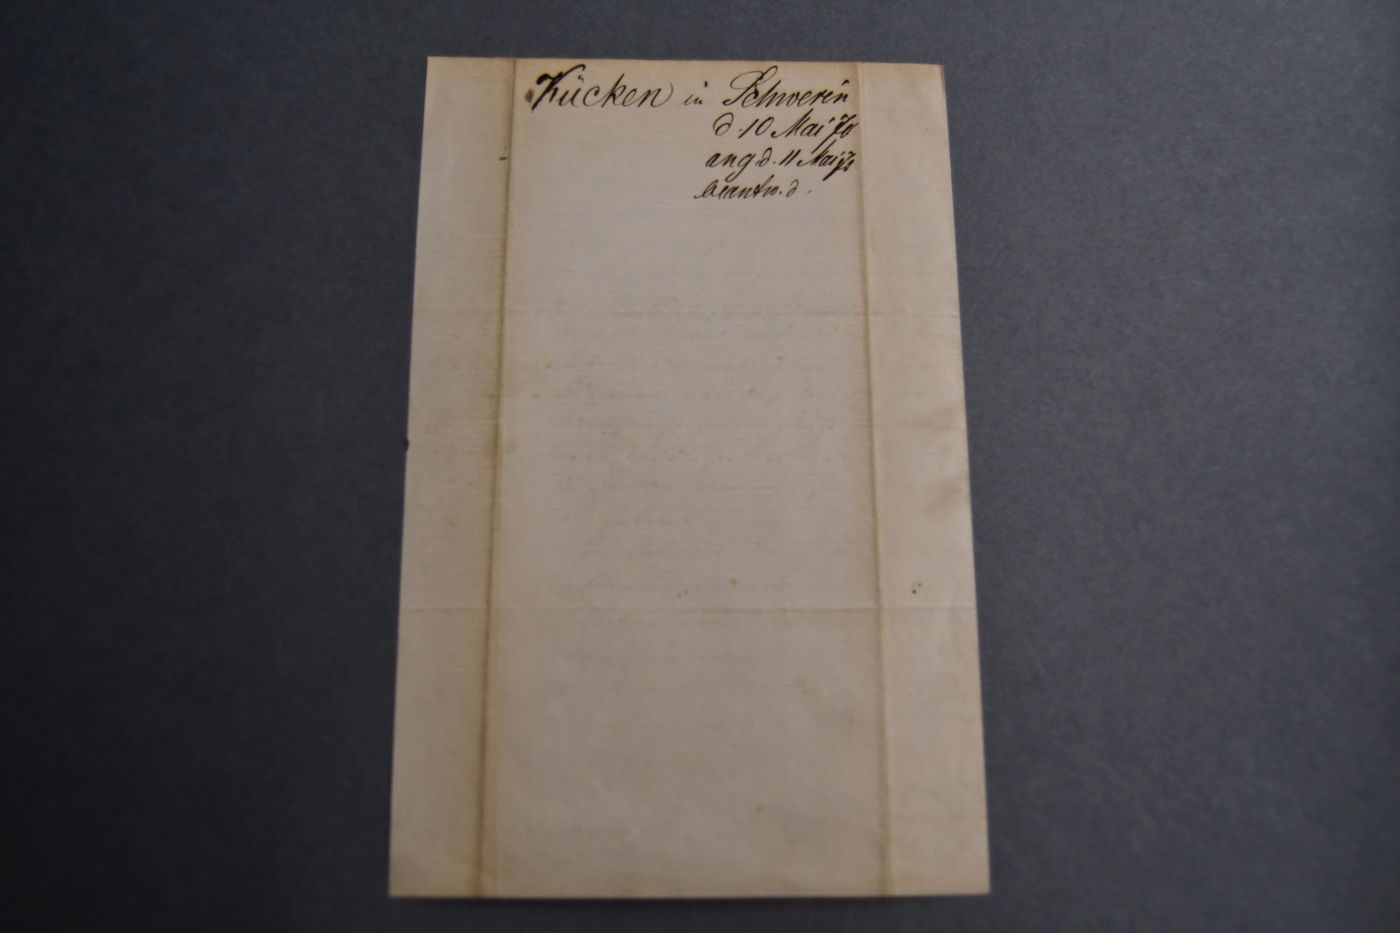 Kücken in Schwerin
d. 10 Mai 70
ang d. 11 Mai 70
beantw. d.